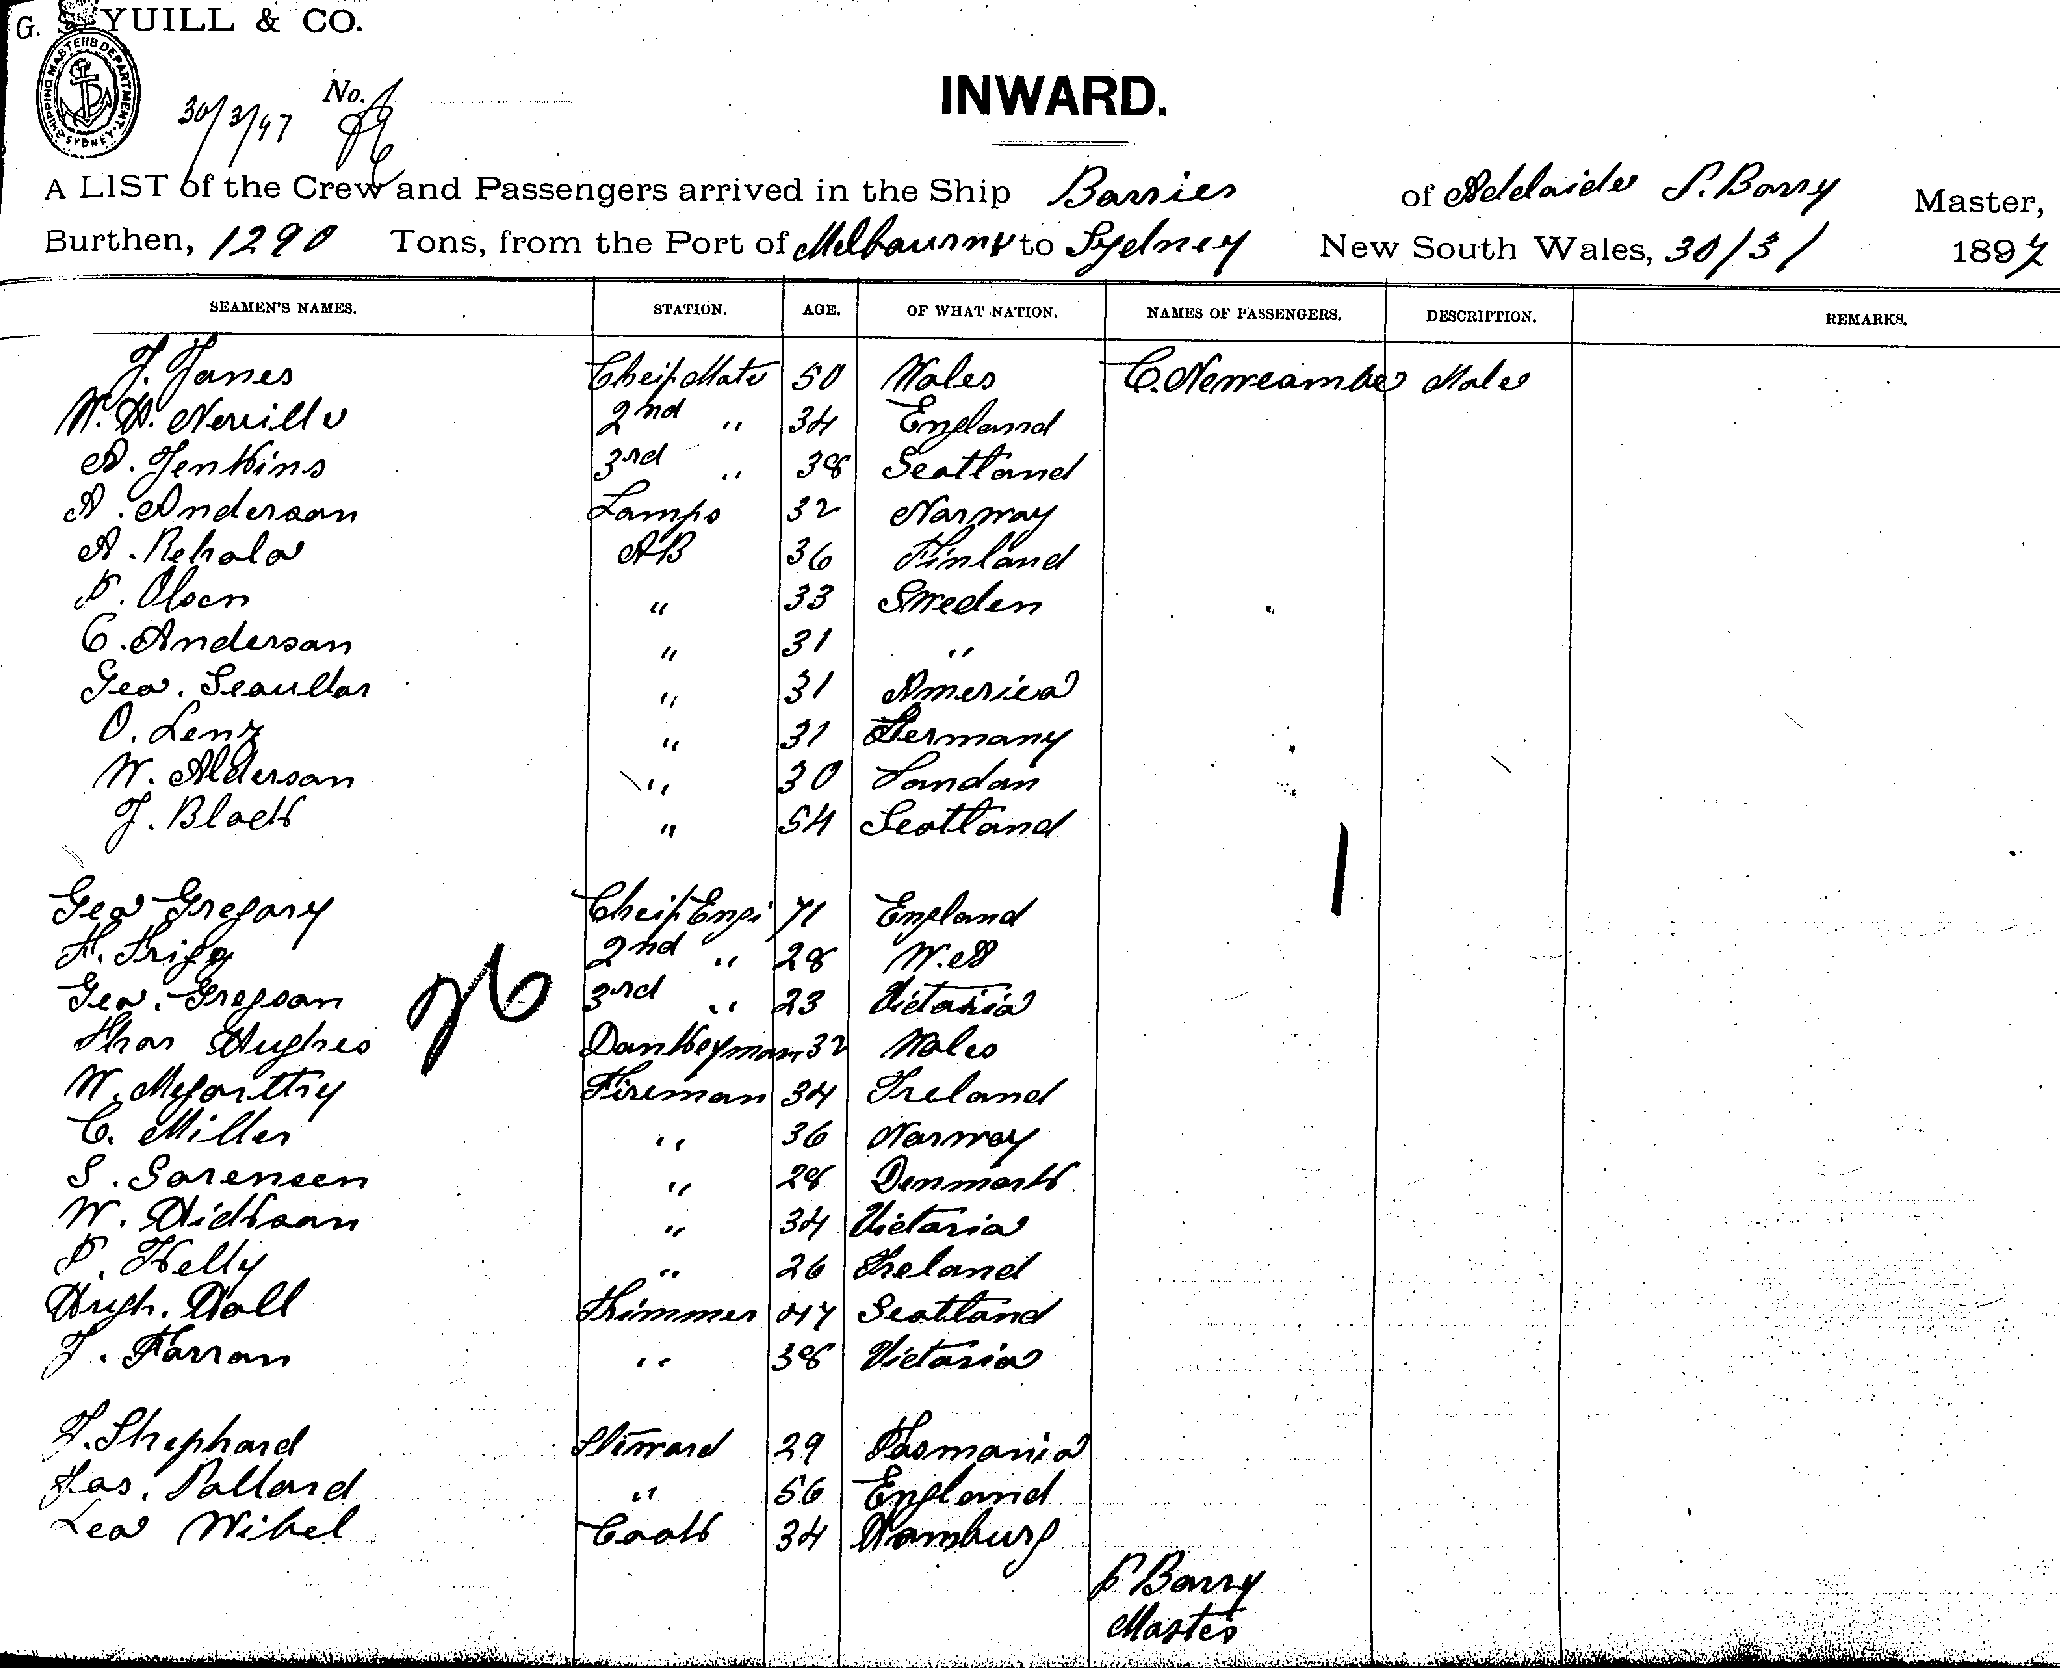 G. S. YUILL & CO.
SHIPPING MASTERS DEPARTMENT SYDNEY
30/3/97 No.
INWARD.
A LIST of the Crew and Passengers arrived in the Ship Barrier of Adelaide P. Barry Master,
Burthen, 1290 Tons, from the Port of Melbourne to Sydney New South Wales, 30/3/ 1897
SEAMEN'S NAMES. STATION. AGE. OF WHAT NATION. NAMES OF PASSENGERS. DESCRIPTION. REMARKS.
J. Jones Cheif Mate 50 Wales C. Newcombe Male
W. H. Neville 2nd " 34 England
A. Jenkins 3rd " 38 Scotland
A. Anderson Lamps 32 Norway
A. Rehola AB 36 Finland
P. Olsen " 33 Sweden
C. Anderson " 31 "
Geo. " 31 America
O. Lenz " 31 Germany
W. Alderson " 30 London
J. Black " 54 Scotland
Geo Gregory Cheif Engi 71 England
H. Trigg 2nd " 28
Geo. Gregson 3rd " 23 Victoria
26
Thos Hughes Donkeyman 32 Wales
W. Mcgorttry Fireman 34 Ireland
C. Miller " 36 Norway
S. Sorensen " 28 Denmark
W. Hickson " 34 Victoria
P. Kelly " 26 Ireland
Hugh. Hall Trimmer 47 Scotland
J. Farran " 38 Victoria
F. Shephard Steward 29 Tasmania
Jas. Pollard " 56 England
Leo Wibel Cook 34 Hamburg
P Barry
Master